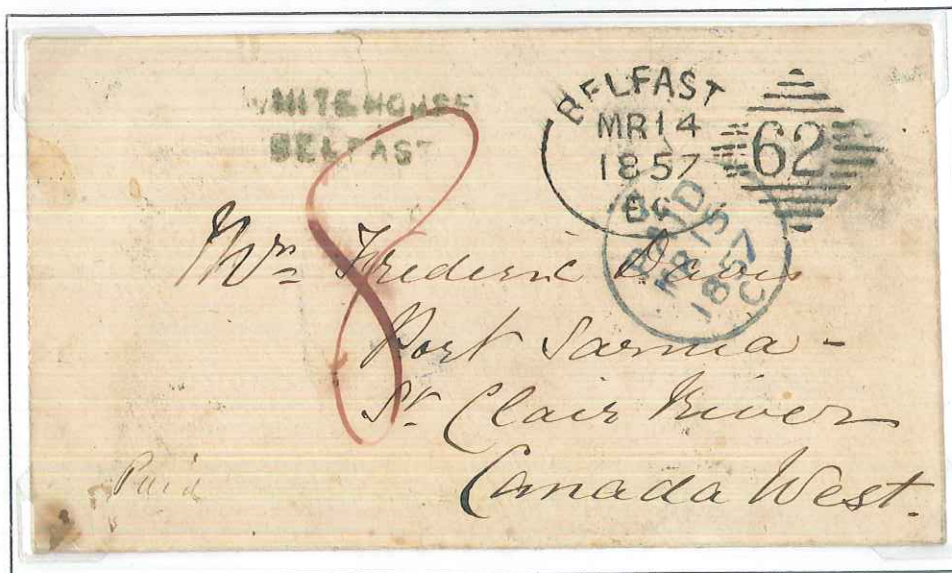 WHITEHOUSE
BELFAST
BELFAST
MR14
1857
62
PAID
MR15
1857
C
8
Mrs Frederic Davis
Port Sarnia -
St. Clair River
Canada West.
Paid